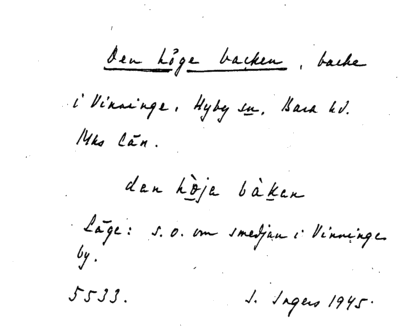 Den höge backen, backe
i Vinninge, Hyby sn, Bara hd.
Mhs län.
dan hòja bàkan
Läge: s.o. om smedjan i Vinninge
by.
5533. I. Ingers 1945.